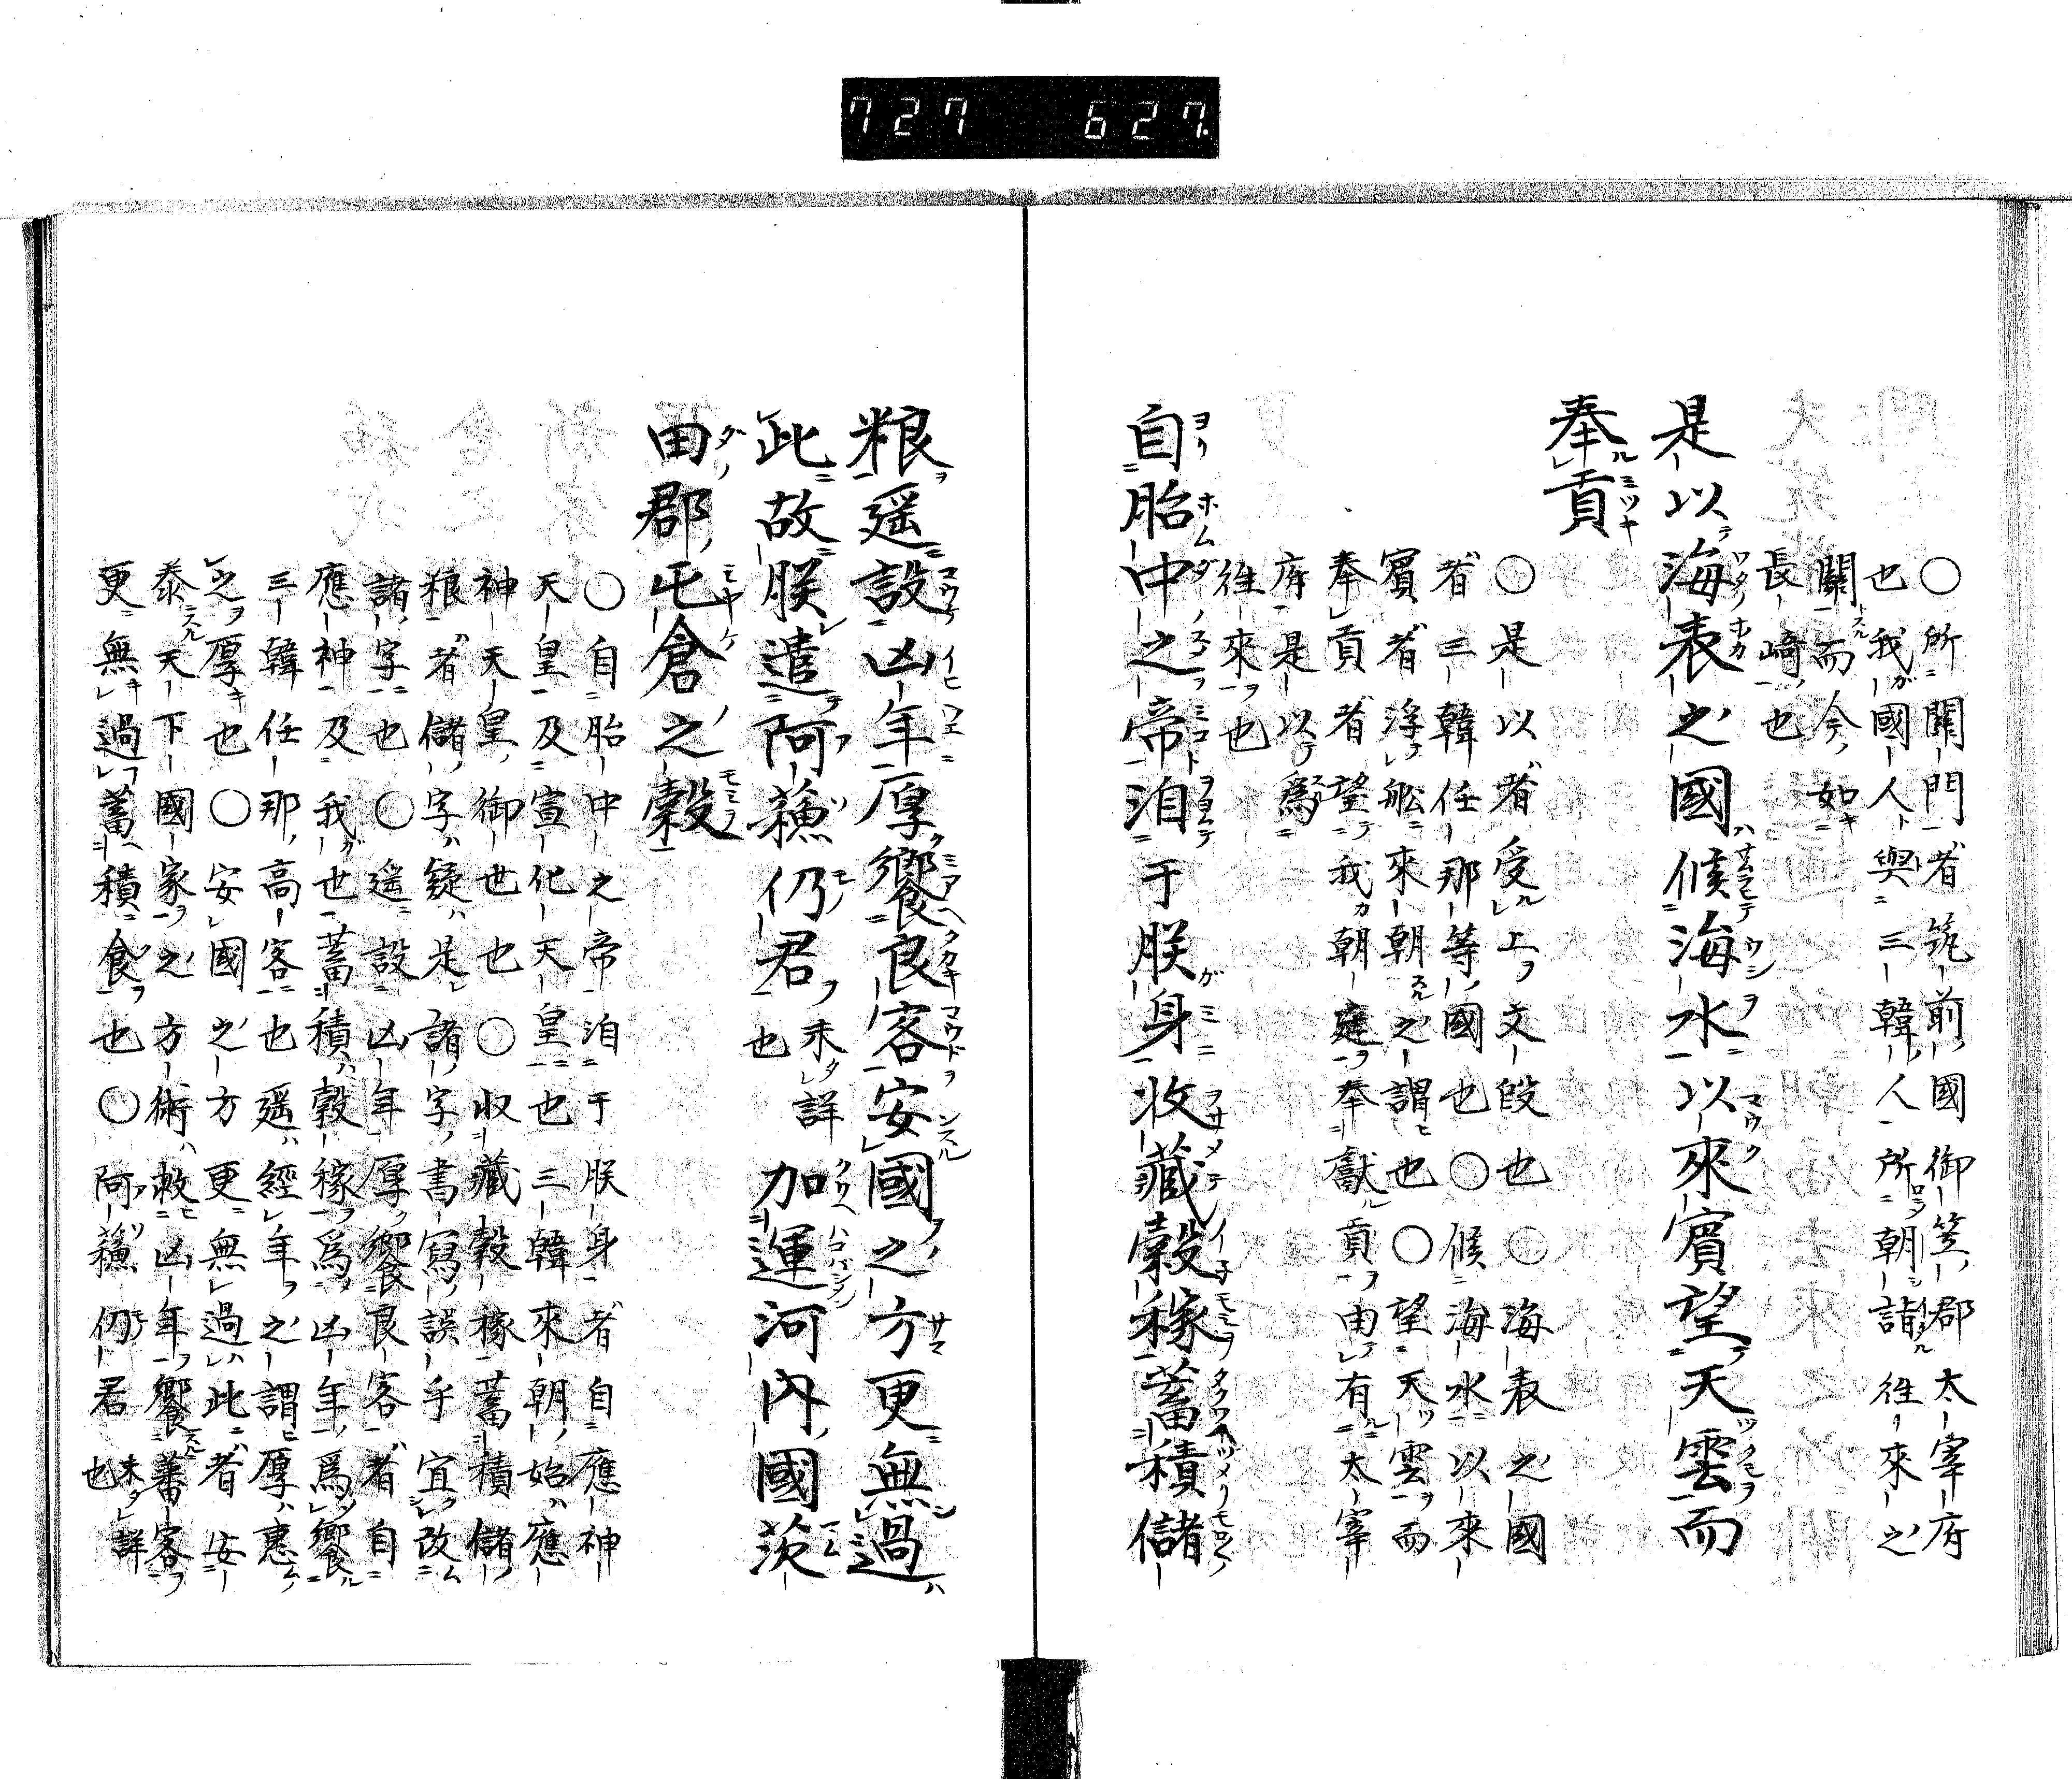 727 627.
○所關門者筑前國御笠郡太宰府
也我國人與三韓人所朝詣往來之
關而今如
長崎也
是以海表之國候海水以來賓望天雲而
奉貢
○是以者受上文段也○海表之國
者三韓任那等國也○候海水以來
賓者浮舩來朝之謂也○望天雲而
奉貢者望我朝庭奉獻貢由有太宰
府是以爲
往來也
自胎中之帝洎于朕身收藏穀稼蓄積儲
粮遥設凶年厚饗良客安國之方更無過
此故朕遣阿蘓仍君未詳也加運河内國茨
田郡屯倉之穀
○自胎中之帝洎于朕身者自應神
天皇及宣化天皇也三韓來朝始應
神天皇御世也○收藏穀稼蓄積儲
粮者儲字疑是諸字書寫誤乎宜改
諸字也○遥設凶年厚饗良客者自
應神及我世蓄積穀稼爲凶年爲饗
三韓任那高客也遥經年之謂厚惠
之厚也○安國之方更無過此者安
泰天下國家之方術救凶年饗蕃客
更無過蓄積食也○阿蘓仍君未詳也